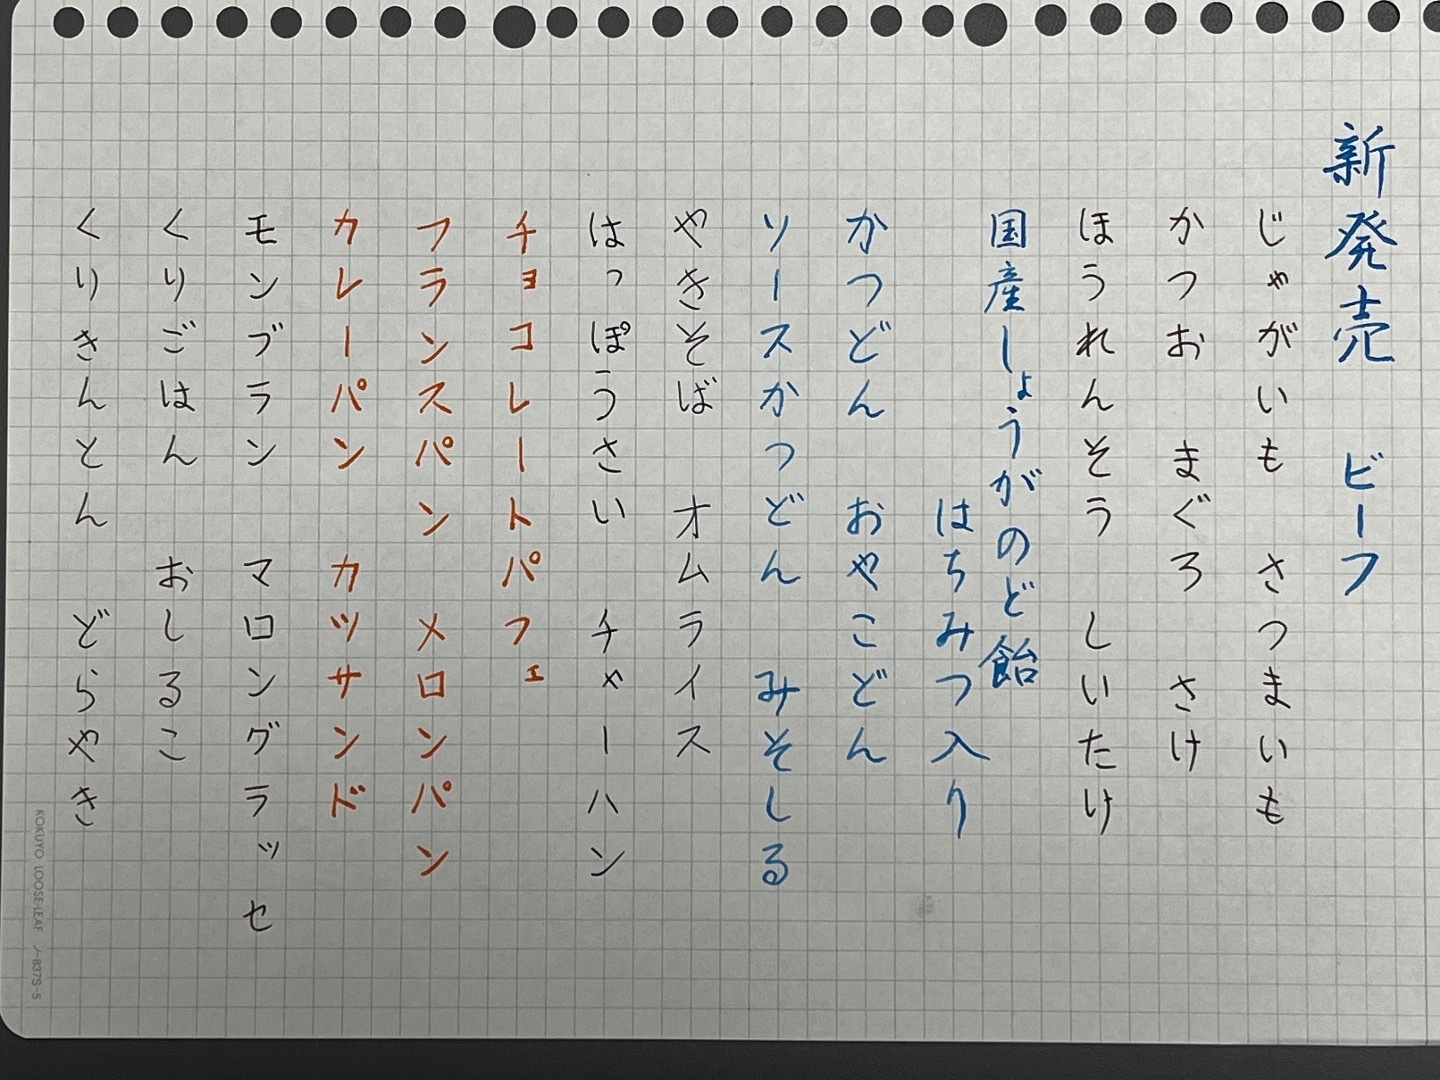 新発売　ビーフ
じゃがいも　さつまいも
かつお　まぐろ　さけ
ほうれんそう　しいたけ
国産しょうがのど飴
はちみつ入り
かつどん　おやこどん
ソースかつどん　みそしる
やきそば　オムライス
はっぽうさい　チャーハン
チョコレートパフェ
フランスパン　メロンパン
カレーパン　カツサンド
モンブラン　マロングラッセ
くりごはん　おしるこ
くりきんとん　どらやき
KOKUYO LOOSE-LEAF ノ-837S-5